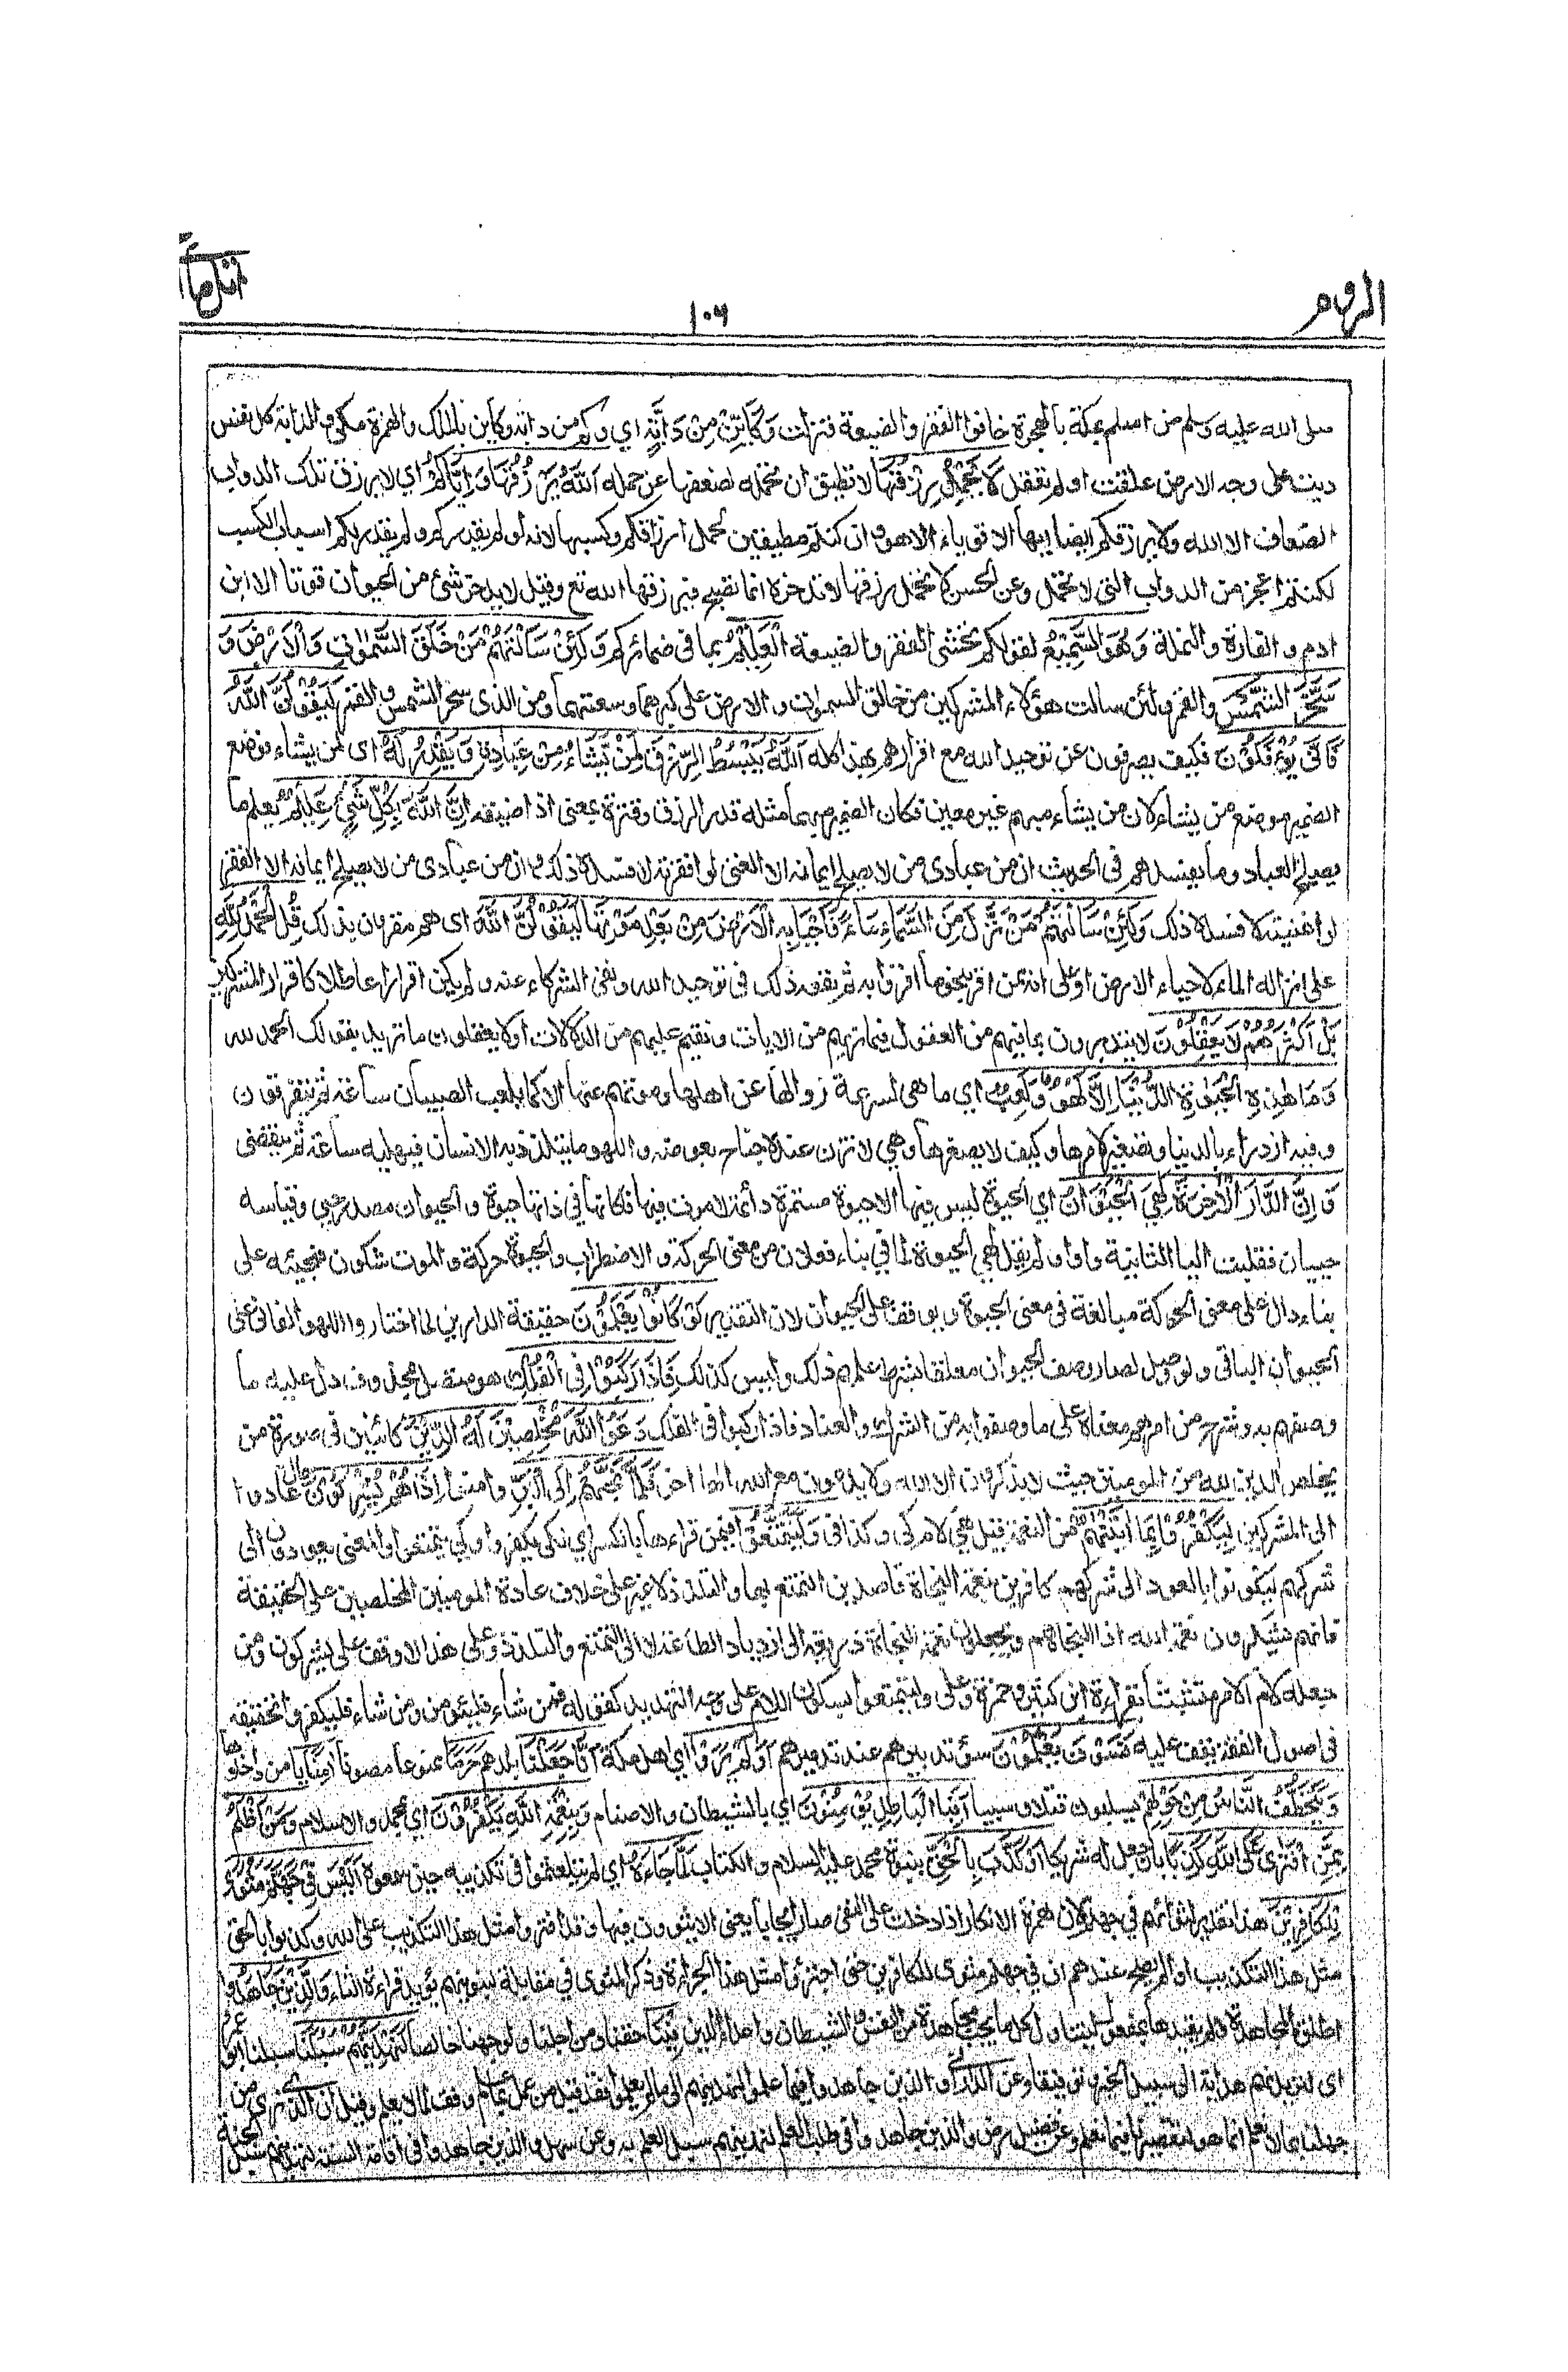 اتل ما
١٠٦
الروم
صلى الله عليه وسلم من اسلم بمكة بالهجرة خافوا الفقر والضيعة فنزلت وَكَاَيِّنْ مِنْ دَآبَّةٍ اي وكم من دابة وكاين بالمد والهمزة مكي والدابة كل نفس
دبت على وجه الارض عقلت او لم تعقل لَا تَحْمِلُ رِزْقَهَا لا تطيق ان تحمله لضعفها عن حمله اَللّٰهُ يَرْزُقُهَا وَاِيَّاكُمْ اي لا يرزق تلك الدواب
الضعاف الا الله ولا يرزقكم ايضا ايها الاقوياء الا هو وان كنتم مطيقين لحمل ارزاقكم وكسبها لانه لو لم يقدركم ولم يقدر لكم اسباب الكسب
لكنتم اعجز من الدواب التي لا تحمل وعن الحسن لا تحمل رزقها لا تدخره انما تصبح فيرزقها الله تع وقيل لا يدخر شئ من الحيوان قوتا الا ابن
ادم و الفارة والنملة وَهُوَ السَّمِيْعُ لقولكم نخشى الفقر والضيعة الْعَلِيْمُ بما في ضمائركم وَلَئِنْ سَاَلْتَهُمْ مَنْ خَلَقَ السَّمٰوٰتِ وَالْاَرْضَ وَ
سَخَّرَ الشَّمْسَ والقمر ولئن سالت هؤلاء المشركين من خالق السموات والارض على كبرهما وسعتهما ومن الذى سخر الشمس والقمر لَيَقُوْلُنَّ اللّٰهُ
فَاَنّٰى يُؤْفَكُوْنَ فكيف يصرفون عن توحيد الله مع اقرارهم بهذا كله اَللّٰهُ يَبْسُطُ الرِّزْقَ لِمَنْ يَّشَاءُ مِنْ عِبَادِهٖ وَيَقْدِرُ لَهٗ اى لمن يشاء فوضع
الضمير موضع من يشاء لان من يشاء مبهم غير معين فكان الضمير مبهما مثله قدر الرزق وقتره بمعنى اذا ضيقه اِنَّ اللّٰهَ بِكُلِّ شَيْئٍ عَلِيْمٌ يعلم ما
يصلح العباد وما يفسدهم فى الحديث ان من عبادى من لا يصلح ايمانه الا الغنى لو افقرته لافسده ذلك وان من عبادى من لا يصلح ايمانه الا الفقر
لو اغنيته لافسده ذلك وَلَئِنْ سَاَلْتَهُمْ مَنْ نَّزَّلَ مِنَ السَّمَاءِ مَاءً فَاَحْيَا بِهِ الْاَرْضَ مِنْ بَعْدِ مَوْتِهَا لَيَقُوْلُنَّ اللّٰهُ اى هم مقرون بذلك قُلِ الْحَمْدُ لِلّٰهِ
على انزاله الماء لاحياء الارض او على انه ممن اقر بنحو ما اقروا به ثم نفعه ذلك فى توحيد الله ونفى الشركاء عنه ولم يكن اقرارا عاطلا كاقرار المشركين
بَلْ اَكْثَرُهُمْ لَا يَعْقِلُوْنَ لا يتدبرون بما فيهم من العقول فيما نريهم من الايات ونقيم عليهم من الدلالات او لا يعقلون ما تريد بقولك الحمد لله
وَمَا هٰذِهِ الْحَيٰوةُ الدُّنْيَا اِلَّا لَهْوٌ وَّلَعِبٌ اي ما هى لسرعة زوالها عن اهلها وموتهم عنها الا كما يلعب الصبيان ساعة ثم يتفرقون
وفيه ازدراء بالدنيا وتصغير لامرها وكيف لا يصغرها وهي لا تزن عنده جناح بعوضة واللهو ما يتلذذ به الانسان فيلهيه ساعة ثم ينقضى
وَاِنَّ الدَّارَ الْاٰخِرَةَ لَهِيَ الْحَيَوَانُ اي الحيوة ليس فيها الا حيوة مستمرة دائمة لا موت فيها فكانها في ذاتها حيوة والحيوان مصدر حيي وقياسه
حييان فقلبت اليا الثانية واوا ولم يقل لهي الحيوة لما في بناء فعلان من معنى الحركة والاضطراب والحيوة حركة والموت سكون فمجيئه على
بناء دال على معنى الحركة مبالغة فى معنى الحيوة ويوقف على الحيوان لان التقدير لَوْ كَانُوْا يَعْلَمُوْنَ حقيقة الدارين لما اختاروا اللهو الفانى على
الحيوان الباقى ولو وصل لصار وصف الحيوان معلقا بشرط علمهم ذلك وليس كذلك فَاِذَا رَكِبُوْا فِى الْفُلْكِ هو متصل بمحذوف دل عليه ما
وصفهم به وشرح من امرهم معناه على ما وصفوا به من الشرك والعناد فاذا ركبوا فى الفلك دَعَوُا اللّٰهَ مُخْلِصِيْنَ لَهُ الدِّيْنَ كائنين فى صورة من
يخلص الدين لله من المومنين حيث لا يذكرون الا الله ولا يدعون مع الله الها اخر فَلَمَّا نَجّٰهُمْ اِلَى الْبَرِّ وامنوا اِذَا هُمْ يُشْرِكُوْنَ عادوا
الى حال المشركين لِيَكْفُرُوْا بِمَا اٰتَيْنٰهُمْ من النعمة قيل هي لام كى وكذا فى وَلِيَتَمَتَّعُوْا فيمن قراءها بالكسر اي لكى يكفروا وكي يتمتعوا والمعنى يعودون الى
شركهم ليكونوا بالعود الى شركهم كافرين بنعمة النجاة قاصدين التمتع بها والتلذذ لا غير على خلاف عادة المومنين المخلصين على الحقيقة
فانهم يشكرون نعمة الله اذا انجاهم ويجعلون نعمة النجاة ذريعة الى ازدياد الطاعة لا الى التمتع والتلذذ وعلى هذا لا وقف على يشركون ومن
جعله لام الامر متشبثا بقراءة ابن كثير وحمزة وعلى وليتمتعوا بسكون اللام على وجه التهديد كقوله فمن شاء فليؤمن ومن شاء فليكفر وتحقيقه
فى اصول الفقه يقف عليه فَسَوْفَ يَعْلَمُوْنَ سوء تدبيرهم عند تدميرهم اَوَلَمْ يَرَوْا اي اهل مكة اَنَّا جَعَلْنَا بلدهم حَرَمًا ممنوعا مصونا اٰمِنًا يامن داخلوها
وَيُتَخَطَّفُ النَّاسُ مِنْ حَوْلِهِمْ يسلبون قتلا وسبيا اَفَبِالْبَاطِلِ يُؤْمِنُوْنَ اي بالشيطان والاصنام وَبِنِعْمَةِ اللّٰهِ يَكْفُرُوْنَ اي بمحمد والاسلام وَمَنْ اَظْلَمُ
مِمَّنِ افْتَرٰى عَلَى اللّٰهِ كَذِبًا بان جعل له شريكا اَوْ كَذَّبَ بِالْحَقِّ بنبوة محمد عليه السلام والكتاب لَمَّا جَاءَهٗ اي لم يتلعثموا فى تكذيبه حين سمعوه اَلَيْسَ فِيْ جَهَنَّمَ مَثْوًى
لِلْكَافِرِيْنَ هذا تقرير لثوائهم في جهنم لان همزة الانكار اذا دخلت على النفى صار ايجابا يعنى الا يثوون فيها وقد افتروا مثل هذا التكذيب على الله وكذبوا بالحق
مثل هذا التكذيب او الم يصح عندهم ان في جهنم مثوى للكافرين حتى اجترؤا مثل هذا الجراءة وذكر المثوى في مقابلة لنبوئنهم يؤيد قراءة الثاء وَالَّذِيْنَ جَاهَدُوْا
اطلق المجاهدة ولم يقيدها بمفعول ليتناول كل ما يجب مجاهدته من النفس والشيطان واعداء الدين فِيْنَا حقنا ومن اجلنا ولوجهنا خالصا لَنَهْدِيَنَّهُمْ سُبُلَنَا سبلنا ابو عمرو
اى لنزيدنهم هداية الى سبيل الخير وتوفيقا وعن الداراني والذين جاهدوا فيما علموا لنهدينهم الى ما لم يعلموا فقد قيل من عمل بما علم وفق لما لا يعلم وقيل ان الذى نرى من
جهلنا بما لا نعلم انما هو لتقصيرنا فيما نعلم وعن فضيل رض والذين جاهدوا فى طلب العلم لنهدينهم سبيل العلم به وعن سهل والذين جاهدوا فى اقامة السنة لنهدينهم سبيل الجنة